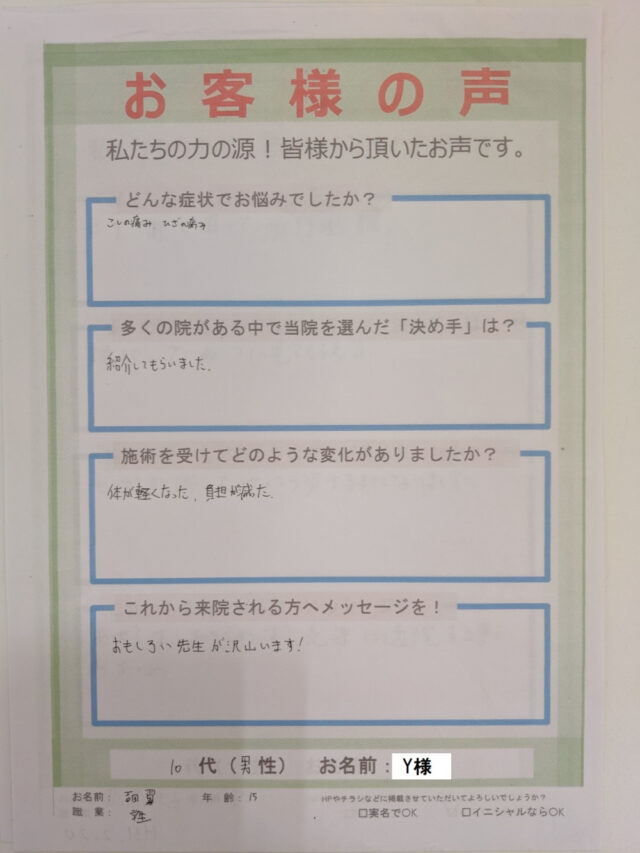 お客様の声
私たちの力の源！皆様から頂いたお声です。
どんな症状でお悩みでしたか？
こしの痛み、ひざの痛み
多くの院がある中で当院を選んだ「決め手」は？
紹介してもらいました。
施術を受けてどのような変化がありましたか？
体が軽くなった、負担が減った。
これから来院される方へメッセージを！
おもしろい先生が沢山います！
10 代（男性） お名前：Y様
お名前： 翼 年 齢：15 HPやチラシなどに掲載させていただいてよろしいでしょうか？
職 業： 学生 □実名でOK □イニシャルならOK